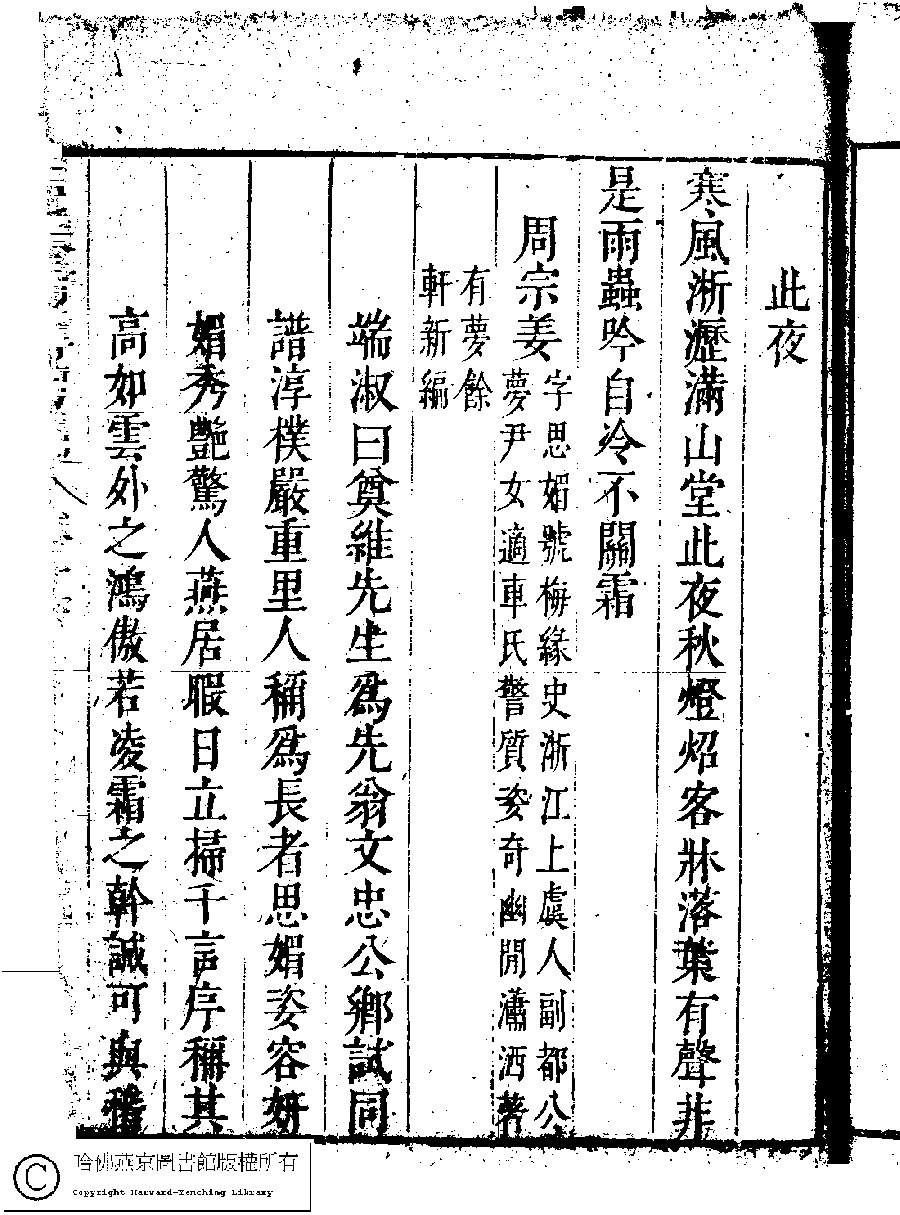 此夜
寒風淅瀝滿山堂此夜秋燈炤客牀落葉有聲非
是雨蟲吟自冷不關霜
周宗姜
字思媚號梅緣史浙江上虞人副都公
夢尹女適車氏警質姿奇幽閒瀟洒著
有夢餘
軒新編
端淑曰奠維先生爲先翁文忠公鄉試同
譜淳樸嚴重里人稱爲長者思媚姿容妍
媚秀艷驚人燕居暇日立掃千言序稱其
高如雲外之鴻傲若凌霜之幹誠可與
哈佛燕京圖書館版權所有
Copyright Harvard-Yenching Library